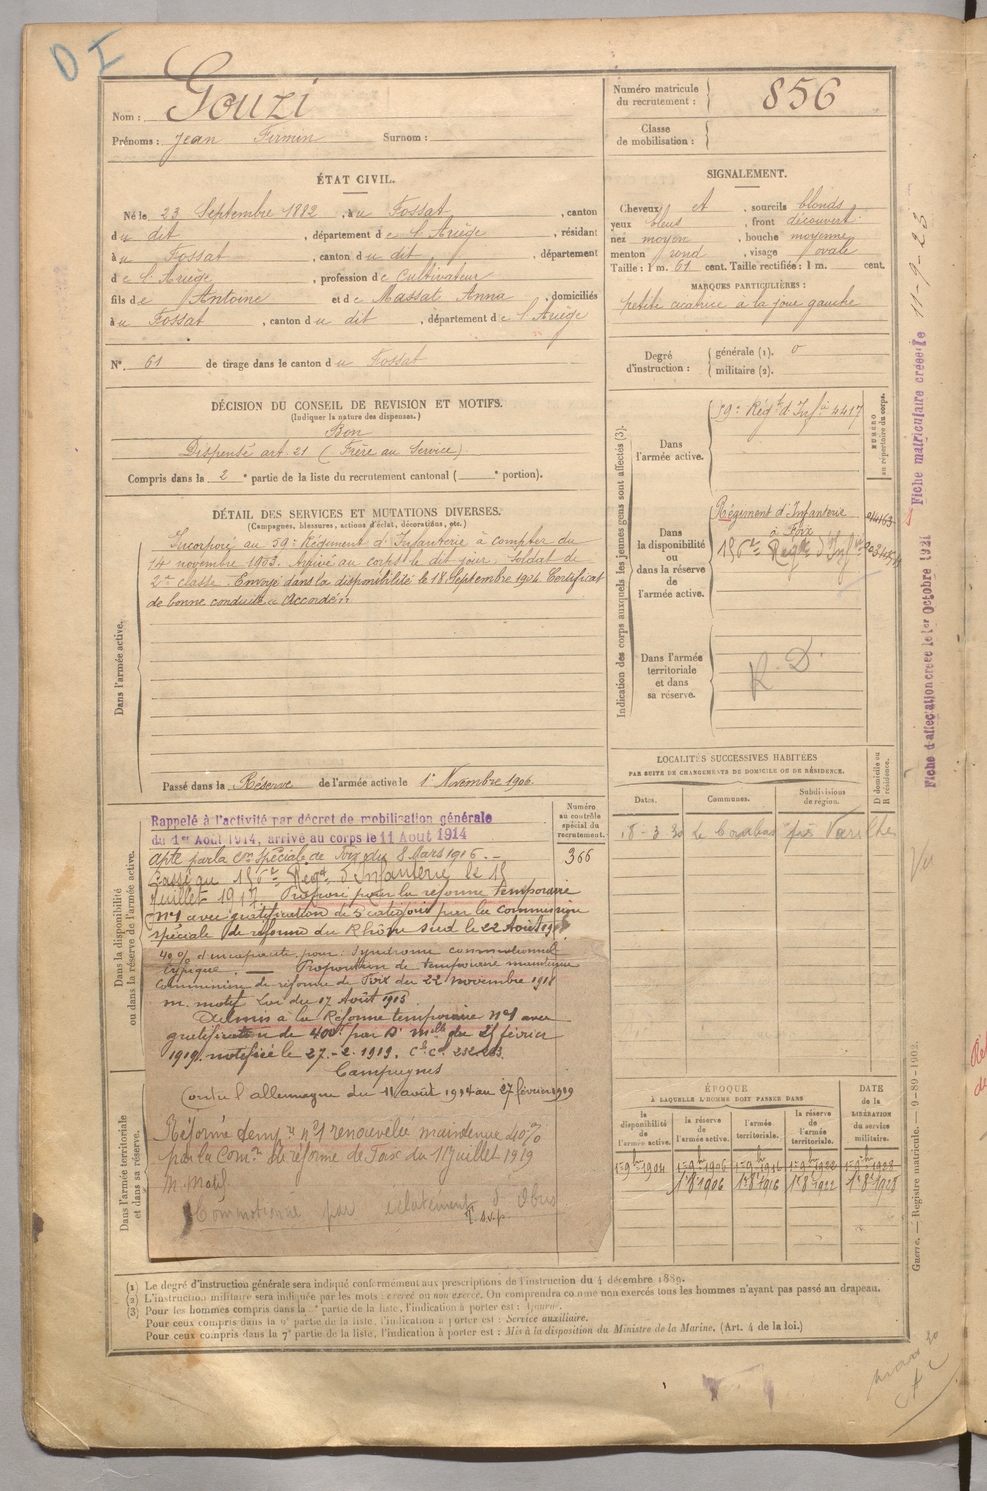 D I
Nom : Gouzi
Prénoms : Jean Firmin Surnom :
Numéro matricule du recrutement : 856
Classe de mobilisation :
ÉTAT CIVIL.
Né le 23 Septembre 1882, à u Fossat, canton
d u dit, département d e l'Ariège, résidant
à u Fossat, canton d u dit, département
d e l'Ariège, profession d e Cultivateur
fils d e Antoine et d e Massat Anna, domiciliés
à u Fossat, canton d u dit, département d e l'Ariège
N° 61 de tirage dans le canton d u Fossat
SIGNALEMENT.
Cheveux et, sourcils blonds
yeux bleus, front découvert
nez moyen, bouche moyenne
menton rond, visage ovale
Taille : 1 m. 61 cent. Taille rectifiée : 1 m. cent.
MARQUES PARTICULIÈRES :
petite cicatrice à la joue gauche
Degré d'instruction : générale (1). 0
militaire (2).
DÉCISION DU CONSEIL DE REVISION ET MOTIFS.
(Indiquer la nature des dispenses.)
Bon
Dispensé art. 21 (Frère au Service)
Compris dans la 2e partie de la liste du recrutement cantonal ( e portion).
DÉTAIL DES SERVICES ET MUTATIONS DIVERSES.
(Campagnes, blessures, actions d'éclat, décorations, etc.)
Dans l'armée active.
Incorporé au 59e Régiment d'Infanterie à compter du
14 novembre 1903. Arrivé au corps le dit jour. Soldat de
2me classe. Envoyé dans la disponibilité le 18 Septembre 1904. Certificat
de bonne conduite Accordé.
Passé dans la Réserve de l'armée active le 1er Novembre 1906
Indication des corps auxquels les jeunes gens sont affectés (3).
NUMÉRO au répertoire du corps.
Dans l'armée active.
59e Régt d'Infie 4417
Dans la disponibilité ou dans la réserve de l'armée active.
Régiment d'Infanterie
à Foix
Dans l'armée territoriale et dans sa réserve.
R. D.
LOCALITÉS SUCCESSIVES HABITÉES
PAR SUITE DE CHANGEMENTS DE DOMICILE OU DE RÉSIDENCE.
Dates. Communes. Subdivisions de région. D domicile ou R résidence.
18-3-30 près Varilhes
Dans la disponibilité ou dans la réserve de l'armée active.
Numéro au contrôle spécial du recrutement.
366
Rappelé à l'activité par décret de mobilisation générale
du 1er Août 1914, arrivé au corps le 11 Août 1914
Apte par la Con spéciale de Foix du 8 Mars 1916.
Passé au Régt d'Infanterie le 15
Juillet 1917. Proposé pour la réforme temporaire
N°1 avec gratification de 5e catégorie par la Commission
spéciale de réforme du Rhône Sud le 22 Août
40 % d'incapacité pour : Syndrome commotionnel
typique. — Proposition de temporaire maintenue
Commission de réforme de Foix du 22 novembre 1918
m. motif Loi du 17 Août 1915
Admis à la Réforme temporaire n°1 avec
gratification de 400f par Dn mlle du 25 février
1919. notifiée le 27-2-1919.
Campagnes
Contre l'allemagne du 11 août 1914 au 27 février 1919
Réforme tempre n°1 renouvelée maintenue 40 %
par la Comon de réforme de Foix du 11 juillet 1919
M. Motif.
Commotionné par éclatement d'obus
T.S.V.P.
Dans l'armée territoriale et dans sa réserve.
ÉPOQUE
À LAQUELLE L'HOMME DOIT PASSER DANS
la disponibilité de l'armée active. la réserve de l'armée active. l'armée territoriale. la réserve de l'armée territoriale. DATE de la LIBÉRATION du service militaire.
1er 9bre 1904 1er 9bre 1906 1er 9bre 1916 1er 9bre 1922 1er 9bre 1928
1er 8bre 1906 1er 8bre 1916 1er 8bre 1922 1er 8bre 1928
Fiche matriculaire créée le 11-9-23
Fiche d'affectation créée le 1er Octobre 1921
Vu
Guerre. — Registre matricule. — 9-89-1902.
(1) Le degré d'instruction générale sera indiqué conformément aux prescriptions de l'instruction du 4 décembre 1889.
(2) L'instruction militaire sera indiquée par les mots : exercé ou non exercé. On comprendra comme non exercés tous les hommes n'ayant pas passé au drapeau.
(3) Pour les hommes compris dans la e partie de la liste, l'indication à porter est : Ajourné.
Pour ceux compris dans la 6e partie de la liste, l'indication à porter est : Service auxiliaire.
Pour ceux compris dans la 7e partie de la liste, l'indication à porter est : Mis à la disposition du Ministre de la Marine. (Art. 4 de la loi.)